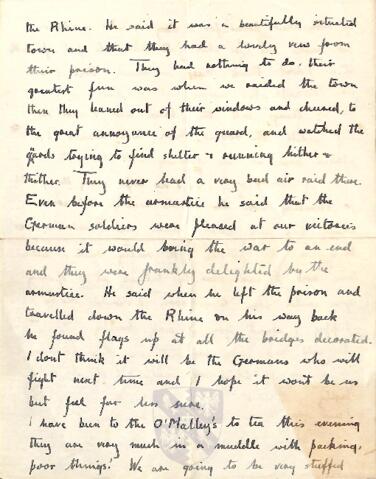 the Rhine. He said it was a beautifully situated
town and that they had a lovely view from
their prison. They had nothing to do, their
greatest fun was when we raided the town
then they leaned out of their windows and cheered, to
the great annoyance of the guard, and watched the
guards trying to find shelter & running hither &
thither. They never had a very bad air raid there.
Even before the armistice he said that the
German soldiers were pleased at our victories
because it would bring the war to an end
and they were frankly delighted by the
armistice. He said when he left the prison and
travelled down the Rhine on his way back
he found flags up at all the bridges decorated.
I dont think it will be the Germans who will
fight next time and I hope it wont be us
but feel far less sure.
I have been to the O'Malley's to tea this evening
they are very much in a muddle with packing,
poor things! We are going to be very stuffed